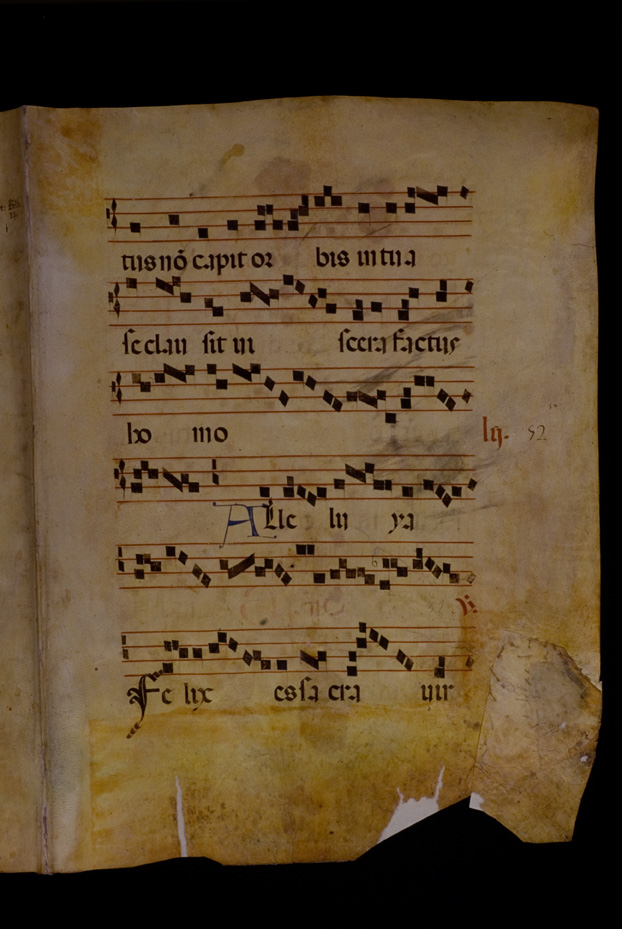 tus nō capit or bis in tua
se clau sit in scera factus
ho mo
lij. 52
Alle lu ya
℣.
Fe lix es sa cra uir